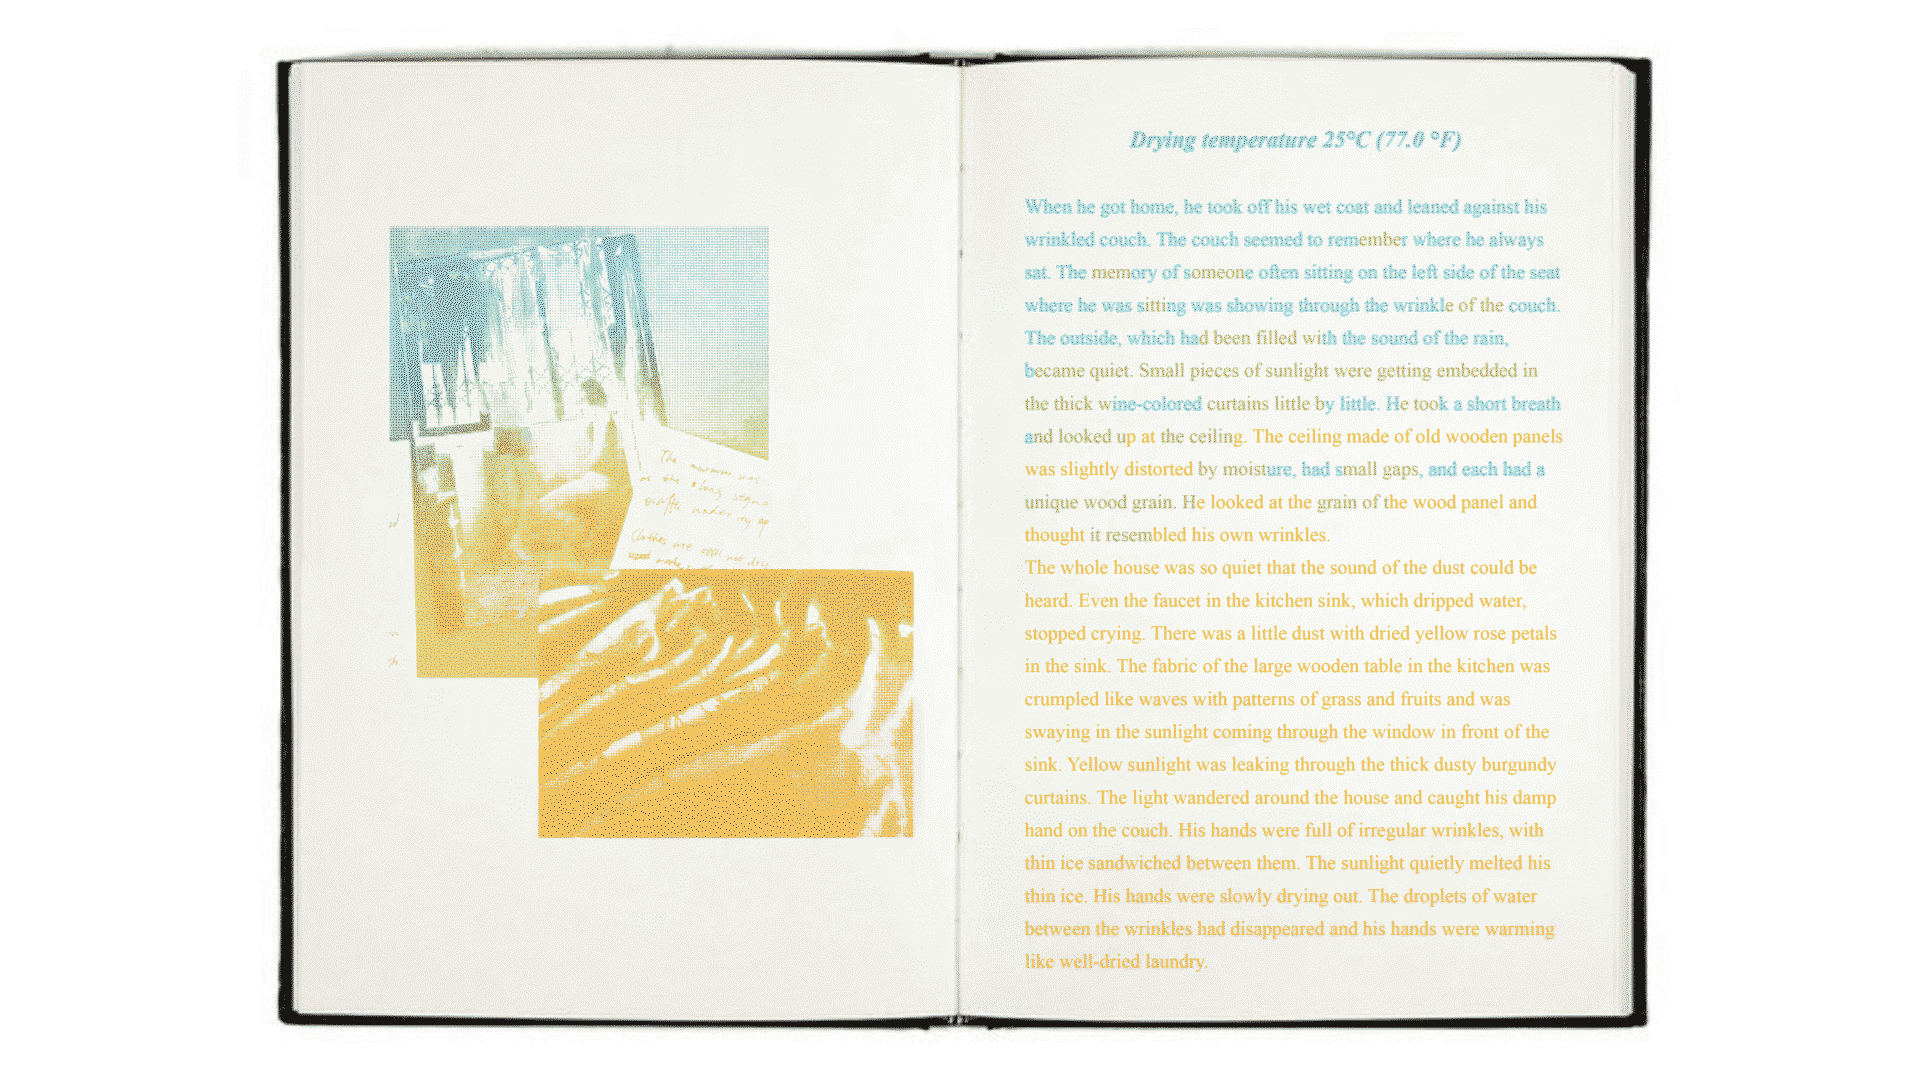 Drying temperature 25°C (77.0 °F)
When he got home, he took off his wet coat and leaned against his
wrinkled couch. The couch seemed to remember where he always
sat. The memory of someone often sitting on the left side of the seat
where he was sitting was showing through the wrinkle of the couch.
The outside, which had been filled with the sound of the rain,
became quiet. Small pieces of sunlight were getting embedded in
the thick wine-colored curtains little by little. He took a short breath
and looked up at the ceiling. The ceiling made of old wooden panels
was slightly distorted by moisture, had small gaps, and each had a
unique wood grain. He looked at the grain of the wood panel and
thought it resembled his own wrinkles.
The whole house was so quiet that the sound of the dust could be
heard. Even the faucet in the kitchen sink, which dripped water,
stopped crying. There was a little dust with dried yellow rose petals
in the sink. The fabric of the large wooden table in the kitchen was
crumpled like waves with patterns of grass and fruits and was
swaying in the sunlight coming through the window in front of the
sink. Yellow sunlight was leaking through the thick dusty burgundy
curtains. The light wandered around the house and caught his damp
hand on the couch. His hands were full of irregular wrinkles, with
thin ice sandwiched between them. The sunlight quietly melted his
thin ice. His hands were slowly drying out. The droplets of water
between the wrinkles had disappeared and his hands were warming
like well-dried laundry.
The
the
traffic under my
Clothes are still not dry